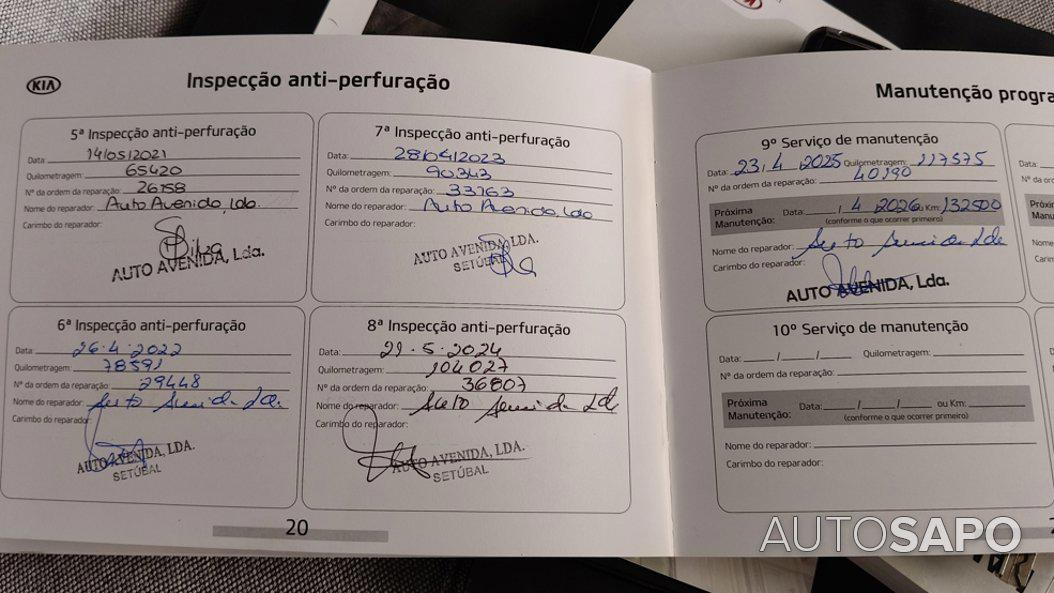 KIA
Inspecção anti-perfuração
5ª Inspecção anti-perfuração
Data: 14/05/2021
Quilometragem: 65420
Nº da ordem da reparação: 26158
Nome do reparador: Auto Avenida, Lda.
Carimbo do reparador:
AUTO AVENIDA, Lda.
6ª Inspecção anti-perfuração
Data: 26.4.2022
Quilometragem: 78591
Nº da ordem da reparação: 29448
Nome do reparador: Auto Avenida Lda.
Carimbo do reparador:
AUTO AVENIDA, LDA.
SETÚBAL
7ª Inspecção anti-perfuração
Data: 28/04/2023
Quilometragem: 90343
Nº da ordem da reparação: 33763
Nome do reparador: Auto Avenida, Lda
Carimbo do reparador:
AUTO AVENIDA, LDA.
SETÚBAL
8ª Inspecção anti-perfuração
Data: 29.5.2024
Quilometragem: 104027
Nº da ordem da reparação: 36807
Nome do reparador: Auto Avenida Lda
Carimbo do reparador:
AUTO AVENIDA, LDA.
SETÚBAL
20
Manutenção progra
9º Serviço de manutenção
Data: 23/4/2025 Quilometragem: 117575
Nº da ordem da reparação: 40190
Próxima Manutenção: Data: /4/2026 ou Km: 132500
(conforme o que ocorrer primeiro)
Nome do reparador: Auto Avenida Lda
Carimbo do reparador:
AUTO AVENIDA, Lda.
10º Serviço de manutenção
Data: / / Quilometragem:
Nº da ordem da reparação:
Próxima Manutenção: Data: / / ou Km:
(conforme o que ocorrer primeiro)
Nome do reparador:
Carimbo do reparador:
Data:
Nº da or
Próxi
Manu
Nome
Carim
AUTOSAPO